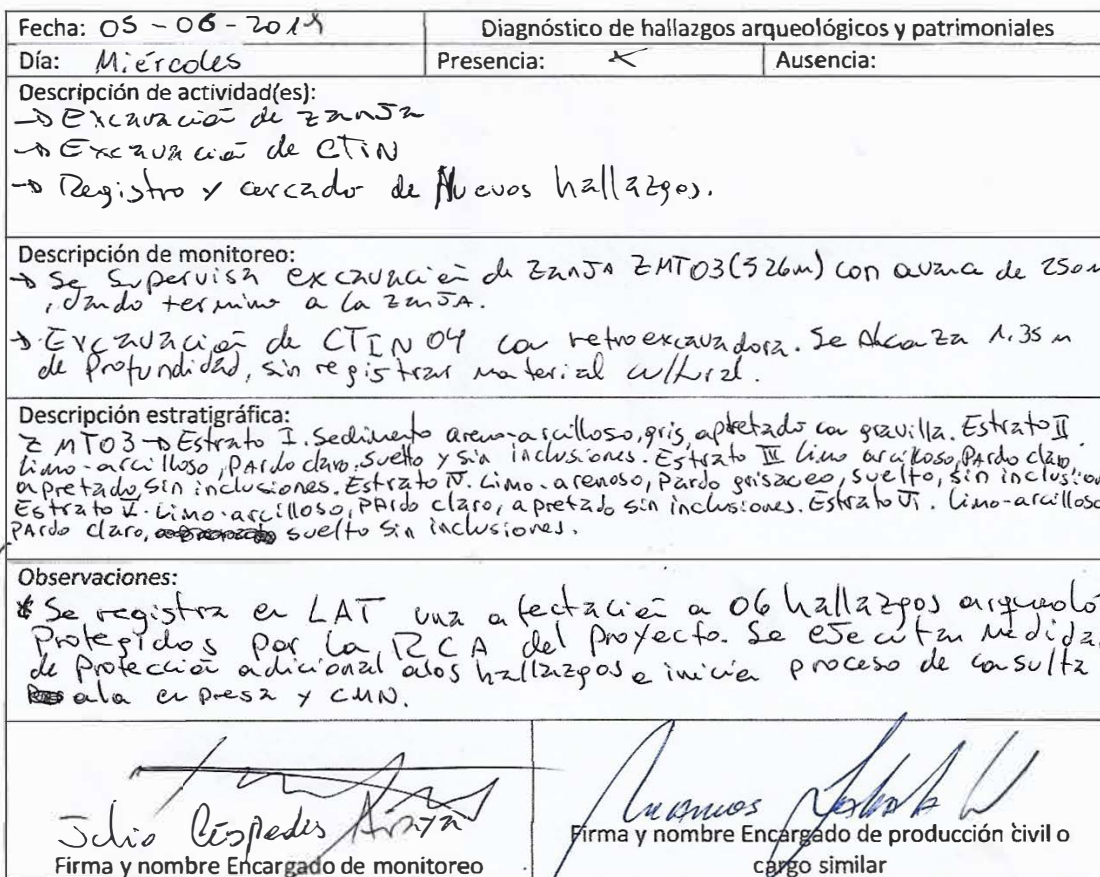 Fecha: 05-06-2019
Diagnóstico de hallazgos arqueológicos y patrimoniales
Día: Miércoles
Presencia: X
Ausencia:
Descripción de actividad(es):
→ Excavación de zanja
→ Excavación de CTIN
→ Registro y cercado de Nuevos hallazgos.
Descripción de monitoreo:
→ Se supervisa excavación de zanja ZMT03 (526m) con avance de 250m
, dando termino a la zanja.
→ Excavación de CTIN 04 con retroexcavadora. Se Alcanza 1.35 m
de Profundidad, sin registrar material cultural.
Descripción estratigráfica:
ZMT03 → Estrato I. Sedimento areno-arcilloso, gris, apretado con gravilla. Estrato II.
Limo-arcilloso, pardo claro, suelto y sin inclusiones. Estrato III Limo arcilloso, pardo claro,
apretado, sin inclusiones. Estrato IV. Limo-arenoso, pardo grisaceo, suelto, sin inclusion
Estrato V. Limo-arcilloso, pardo claro, apretado sin inclusiones. Estrato VI. Limo-arcilloso
pardo claro, suelto sin inclusiones.
Observaciones:
* Se registra en LAT una afectación a 06 hallazgos arqueoló
Protegidos por la RCA del Proyecto. Se ejecutan medida
de protección adicional a los hallazgos e inicia proceso de consulta
a la empresa y CMN.
Julio Céspedes Araya
Firma y nombre Encargado de monitoreo
Firma y nombre Encargado de producción civil o
cargo similar